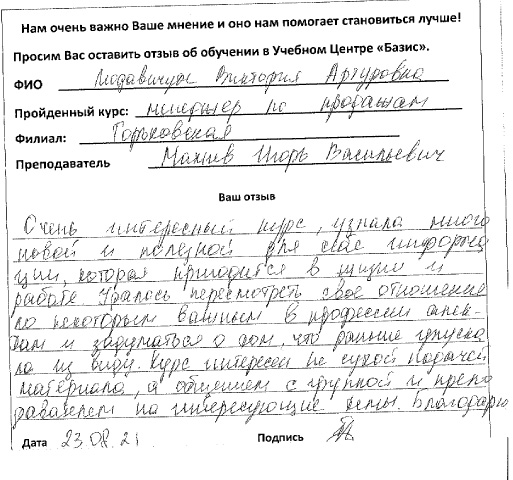 Нам очень важно Ваше мнение и оно нам помогает становиться лучше!
Просим Вас оставить отзыв об обучении в Учебном Центре «Базис».
ФИО Виктория Артуровна
Пройденный курс: менеджер по продажам
Филиал: Горьковская
Преподаватель Игорь Васильевич
Ваш отзыв
Очень интересный курс, узнала много
новой и полезной для себя информа
ции, которая пригодится в жизни и
работе. Удалось пересмотреть свое отношение
по некоторым важным в профессии аспек-
там и задуматься о том, что раньше упуска
ла из виду. Курс интересен не сухой подачей
материала, а общением с группой и препо
давателем на интересующие темы. Благодарю
Дата 23.08.21 Подпись